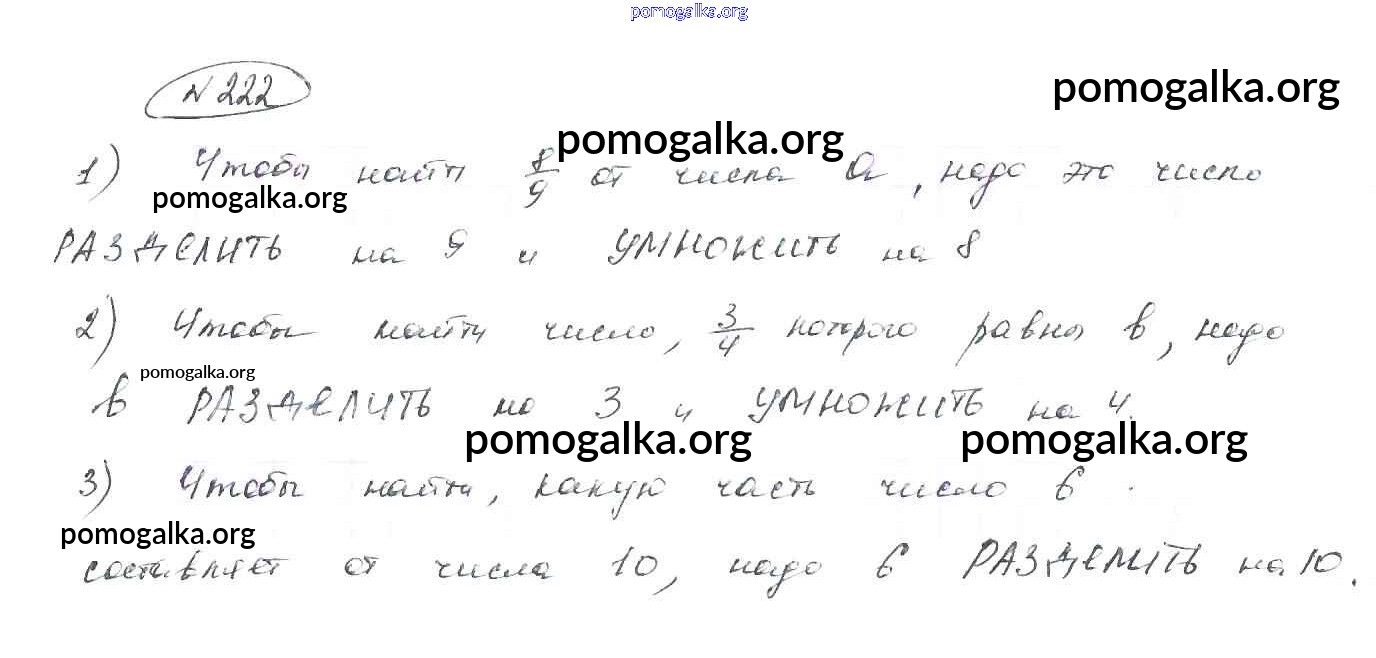 pomogalka.org
N 222
pomogalka.org
pomogalka.org
1) Чтобы найти 8/9 от числа a, надо это число
pomogalka.org
РАЗДЕЛИТЬ на 9 и УМНОЖИТЬ на 8
2) Чтобы найти число, 3/4 которого равны b, надо
pomogalka.org
b РАЗДЕЛИТЬ на 3 и УМНОЖИТЬ на 4.
pomogalka.org pomogalka.org
3) Чтобы найти, какую часть число 6
pomogalka.org
составляет от числа 10, надо 6 РАЗДЕЛИТЬ на 10.